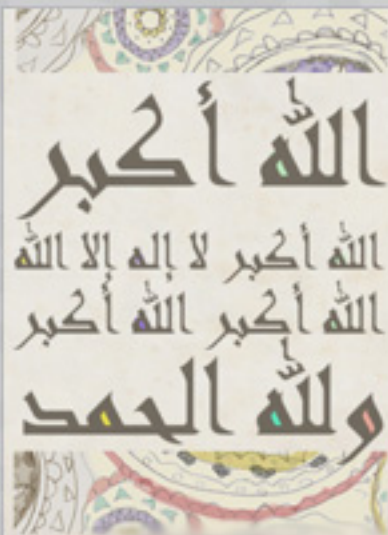 الله أكبر
الله أكبر لا إله إلا الله
الله أكبر الله أكبر
ولله الحمد